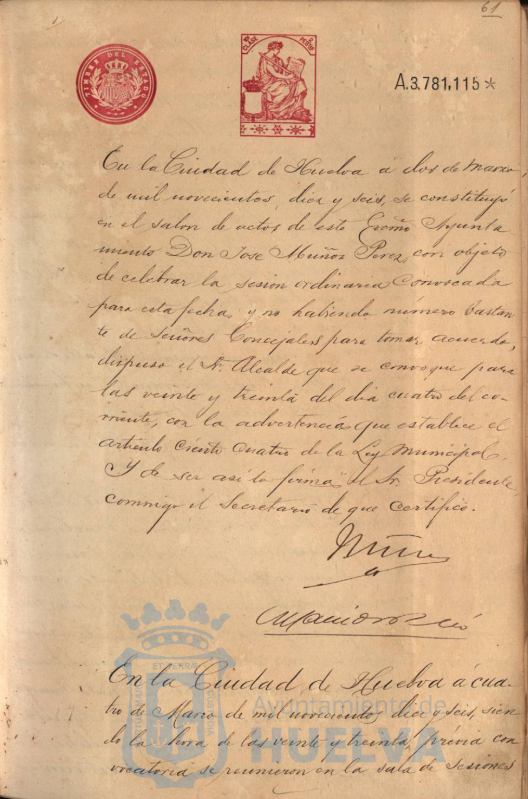 61
TIMBRE DEL ESTADO
A.3.781,115*
En la Ciudad de Huelva á dos de Marzo,
de mil novecientos, diez y seis, se constituyó
en el salon de actos de este Excmo Ayunta
miento Don Jose Muñoz Perez, con objeto
de celebrar la sesion ordinaria convocada
para esta fecha, y no habiendo número bastan
te de Señores Concejales para tomar acuerdo,
dispuso el Sr. Alcalde que se convoque para
las veinte y treinta del dia cuatro del co-
rriente, con la advertencia que establece el
artículo ciento cuatro de la Ley Municipal.
Y de ser así lo firma el Sr. Presidente,
conmigo el Secretario de que certifico.
En la Ciudad de Huelva á cua-
tro de Marzo de mil novecientos, diez y seis, sien
do la hora de las veinte y treinta, prévia con
vocatoria se reunieron en la sala de sesiones
Ayuntamiento de
HUELVA